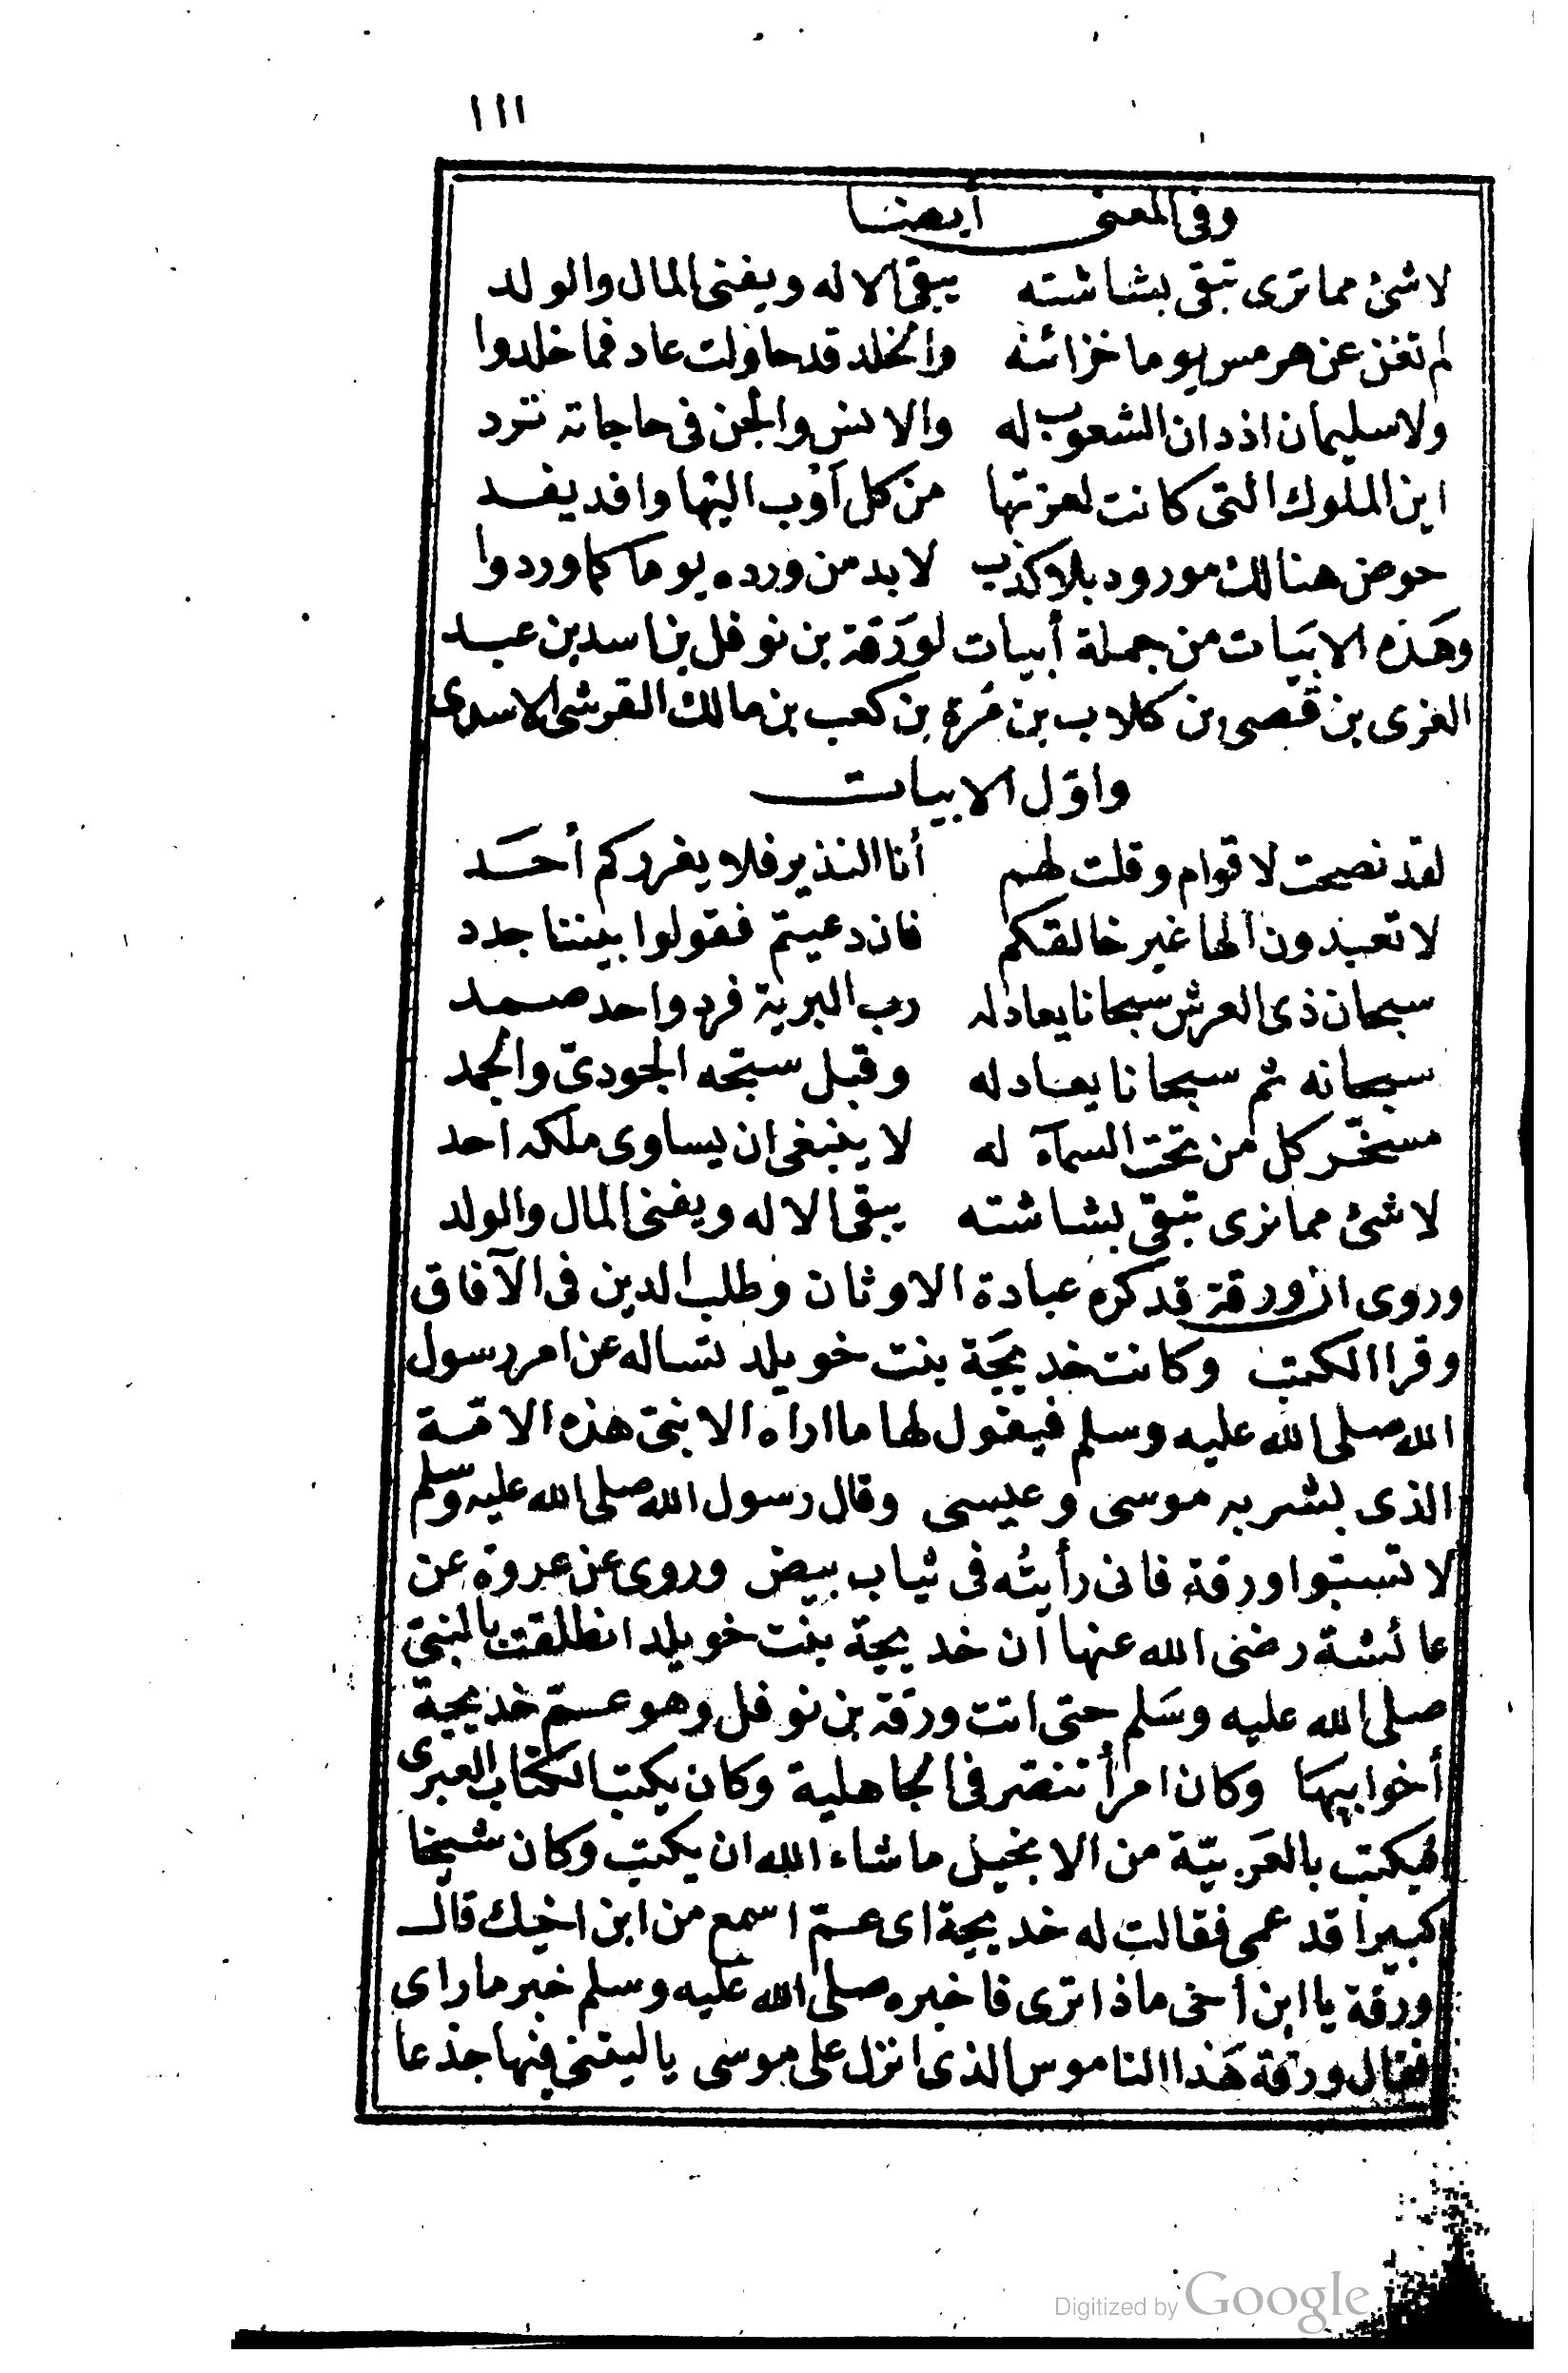 ١١١
وفى المعنى أيضا
لا شئ مما ترى تبقى بشاشته يبقى الاله ويفنى المال والولد
لم تغن عن هرمس يوما خزائنه والخلد قد حاولت عاد فما خلدوا
ولا سليمان اذ دان الشعوب له والانس والجن فى حاجاته ترد
اين الملوك التى كانت لعزتها من كل أوب اليها وافد يفد
حوض هنالك مورود بلا كذب لا بد من ورده يوما كما وردوا
وهذه الابيات من جملة أبيات لورقة بن نوفل بن اسد بن عبد
العزى بن قصى بن كلاب بن مرة بن كعب بن مالك القرشى الاسدى
واوّل الابيات
لقد نصحت لاقوام وقلت لهم أنا النذير فلا يغرركم أحد
لا تعبدون الها غير خالقكم فان دعيتم فقولوا بيننا جدد
سبحان ذى العرش سبحانا يعادله رب البرية فرد واحد صمد
سبحانه ثم سبحانا يعادله وقبل سبّحه الجودىّ والجمد
مسخّر كل من تحت السمآء له لا ينبغى ان يساوى ملكه احد
لا شئ مما نرى تبقى بشاشته يبقى الاله ويفنى المال والولد
وروى ان ورقة قد كره عبادة الاوثان وطلب الدين فى الآفاق
وقرا الكتب وكانت خديجة بنت خويلد تساله عن امر رسول
الله صلى الله عليه وسلم فيقول لها ما اراه الا نبىّ هذه الامّة
الذى بشر به موسى وعيسى وقال رسول الله صلى الله عليه وسلم
لا تسبّوا ورقة فانى رأيتُه فى ثياب بيض وروى عن عروة عن
عائشة رضى الله عنها ان خديجة بنت خويلد انطلقت بالنبىّ
صلى الله عليه وسلم حتى اتت ورقة بن نوفل وهو عمّ خديجة
أخو ابيها وكان امرأ تنصّر فى الجاهلية وكان يكتب الكتاب العبرى
فيكتب بالعربيّة من الانجيل ما شاء الله ان يكتب وكان شيخا
كبيرا قد عمى فقالت له خديجة اى عمّ اسمع من ابن اخيك قال
ورقة يا ابن أخى ماذا ترى فاخبره صلى الله عليه وسلم خبر ما راى
فقال ورقة هذا الناموس الذى انزل على موسى يا ليتنى فيها جذعا
Digitized by Google